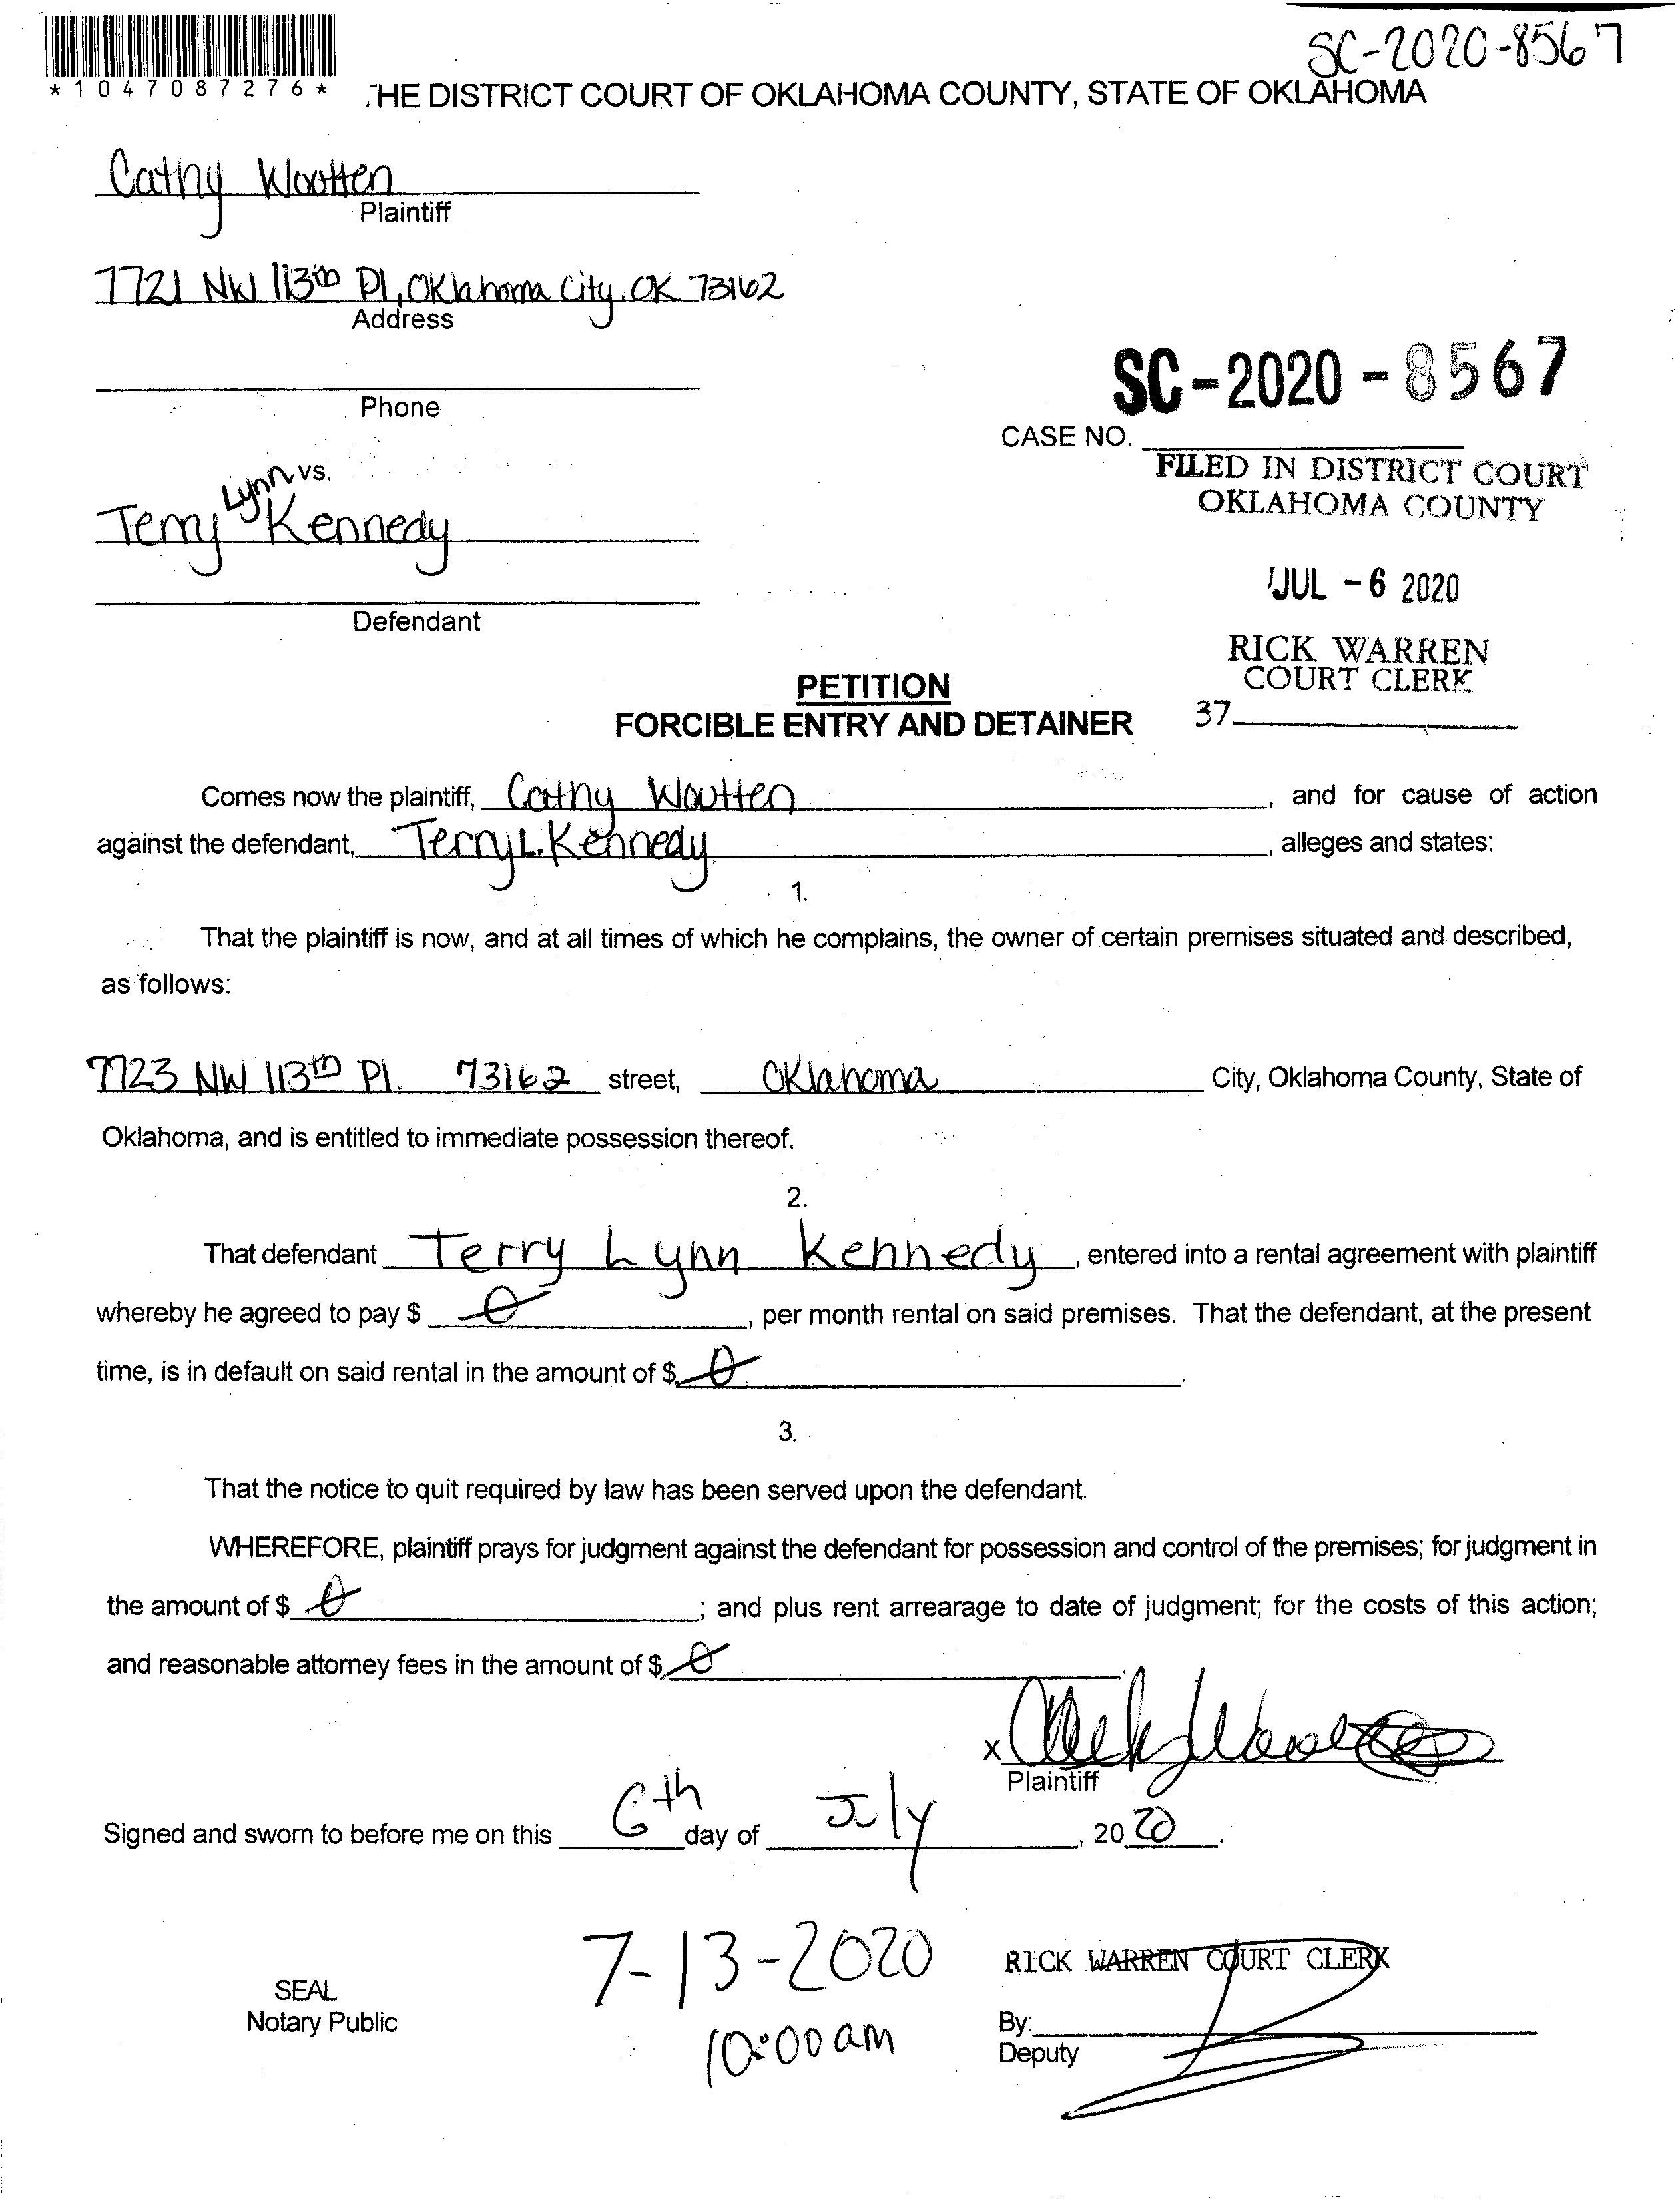 SC-2020-8567
*1047087276*
THE DISTRICT COURT OF OKLAHOMA COUNTY, STATE OF OKLAHOMA
Cathy Wootten
Plaintiff
7721 NW 113th Pl, Oklahoma City, OK 73162
Address
Phone
SC-2020-8567
CASE NO.
FILED IN DISTRICT COURT
OKLAHOMA COUNTY
JUL -6 2020
RICK WARREN
COURT CLERK
37
vs.
Terry Lynn Kennedy
Defendant
PETITION
FORCIBLE ENTRY AND DETAINER
Comes now the plaintiff, Cathy Wootten, and for cause of action
against the defendant, Terry L. Kennedy, alleges and states:
1.
That the plaintiff is now, and at all times of which he complains, the owner of certain premises situated and described,
as follows:
7723 NW 113th Pl. 73162 street, Oklahoma City, Oklahoma County, State of
Oklahoma, and is entitled to immediate possession thereof.
2.
That defendant Terry Lynn Kennedy, entered into a rental agreement with plaintiff
whereby he agreed to pay $ 0, per month rental on said premises. That the defendant, at the present
time, is in default on said rental in the amount of $ 0.
3.
That the notice to quit required by law has been served upon the defendant.
WHEREFORE, plaintiff prays for judgment against the defendant for possession and control of the premises; for judgment in
the amount of $ 0; and plus rent arrearage to date of judgment; for the costs of this action;
and reasonable attorney fees in the amount of $ 0.
x
Plaintiff
Signed and sworn to before me on this 6th day of July, 2020.
7-13-2020
10:00 am
SEAL
Notary Public
RICK WARREN COURT CLERK
By:
Deputy